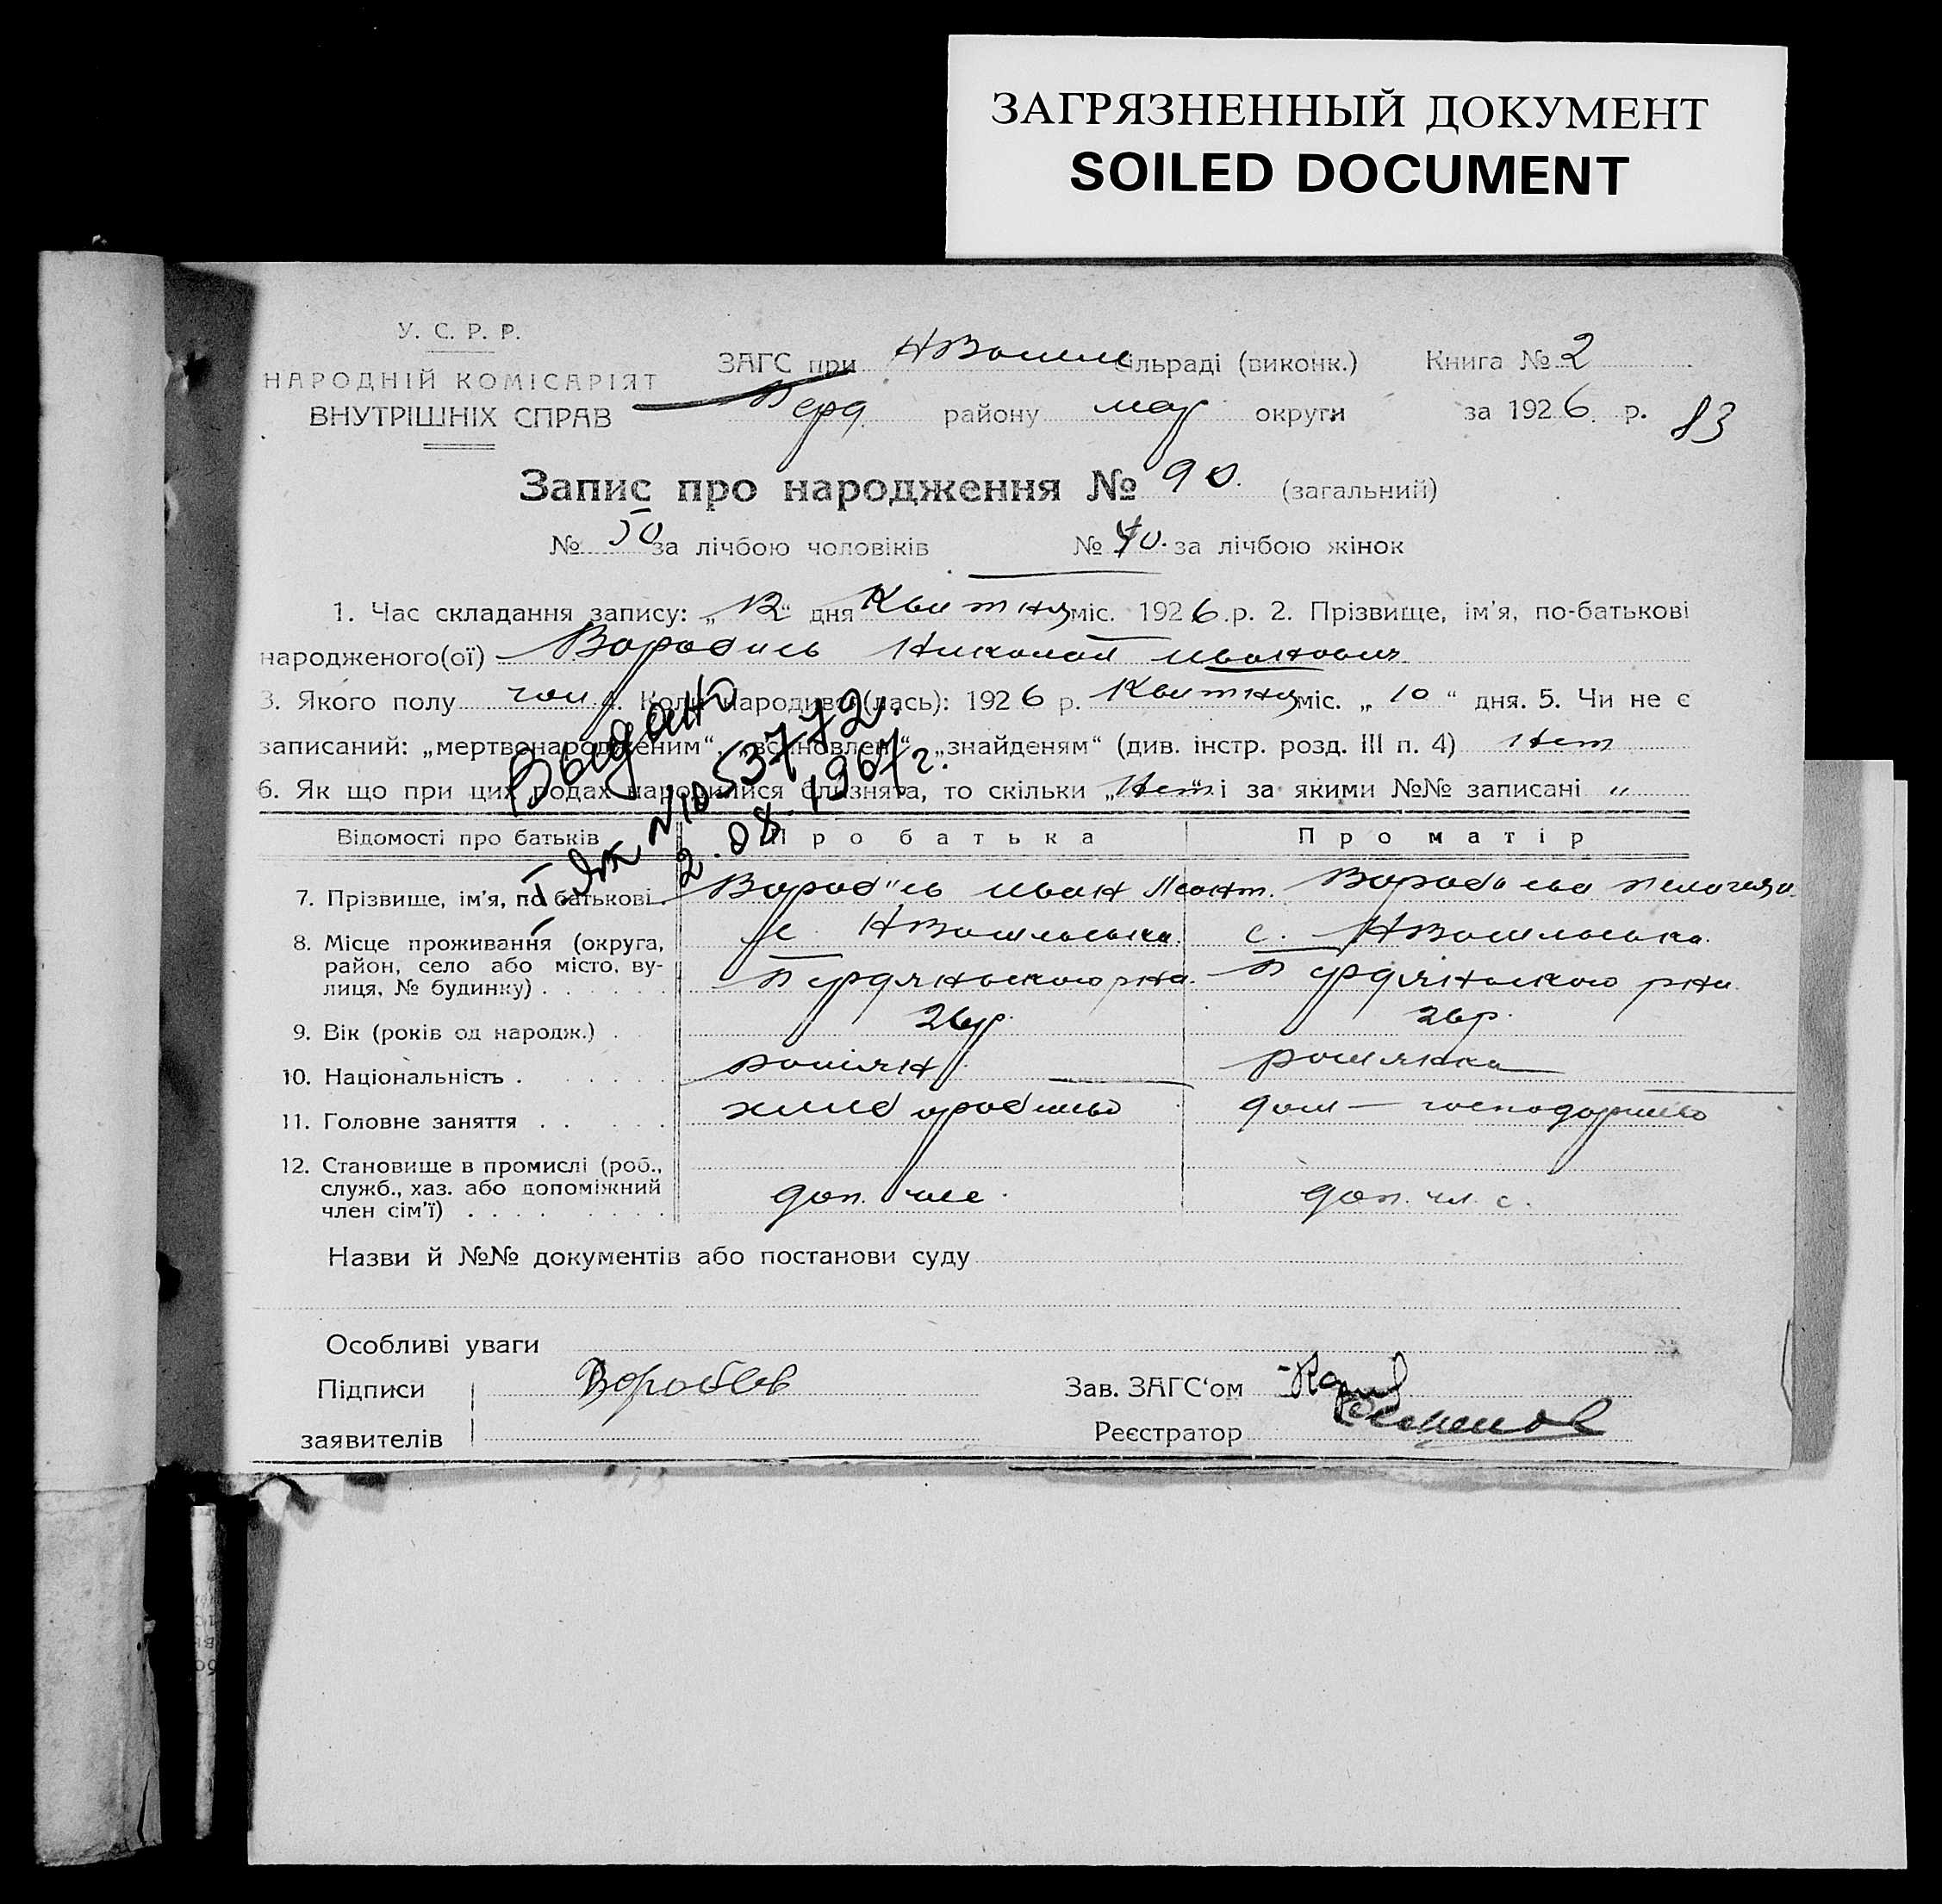 ЗАГРЯЗНЕННЫЙ ДОКУМЕНТ
SOILED DOCUMENT
У. С. Р. Р.
НАРОДНІЙ КОМІСАРІЯТ
ВНУТРІШНІХ СПРАВ
ЗАГС при сільраді (виконк.) Книга № 2
Берд. району мар. округи за 1926 р. 83
Запис про народження № 90. (загальний)
№ 50 за лічбою чоловіків № 40. за лічбою жінок
1. Час складання запису: „12“ дня Квитня міс. 1926 р. 2. Прізвище, ім'я, по-батькові
народженого(ої) Воробйь Николай Иванович
3. Якого полу чол 4. Коли народився(лась): 1926 р. Квитня міс. „10“ дня. 5. Чи не є
записаний: „мертвонародженим“, „встановлен“, „знайденям“ (див. інстр. розд. III п. 4) Нет
6. Як що при цих родах народилися близнята, то скільки „Нет“ і за якими №№ записані "
Выдано
№ 1053772.
2.08.1967г.
Відомості про батьків Про батька Про матір
7. Прізвище, ім'я, по батькові Воробйь Иван Воробйева Пелагея
8. Місце проживання (округа, район, село або місто, вулиця, № будинку) с. с.
Бердянського рна. Бердянського рна.
9. Вік (років од народж.) 26 р. 26 р.
10. Національність росіян росиянка
11. Головне заняття хлиборобство дом — господарство
12. Становище в промислі (роб., служб., хаз. або допоміжний член сім'ї) доп. чл с. доп. чл. с.
Назви й №№ документів або постанови суду
Особливі уваги
Підписи Воробьев Зав. ЗАГС'ом
заявителів Реєстратор